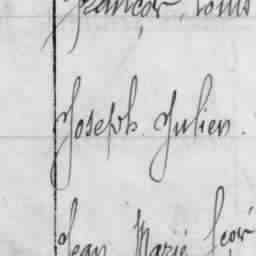 François, Louis
Joseph. Julien.
Jean Marie